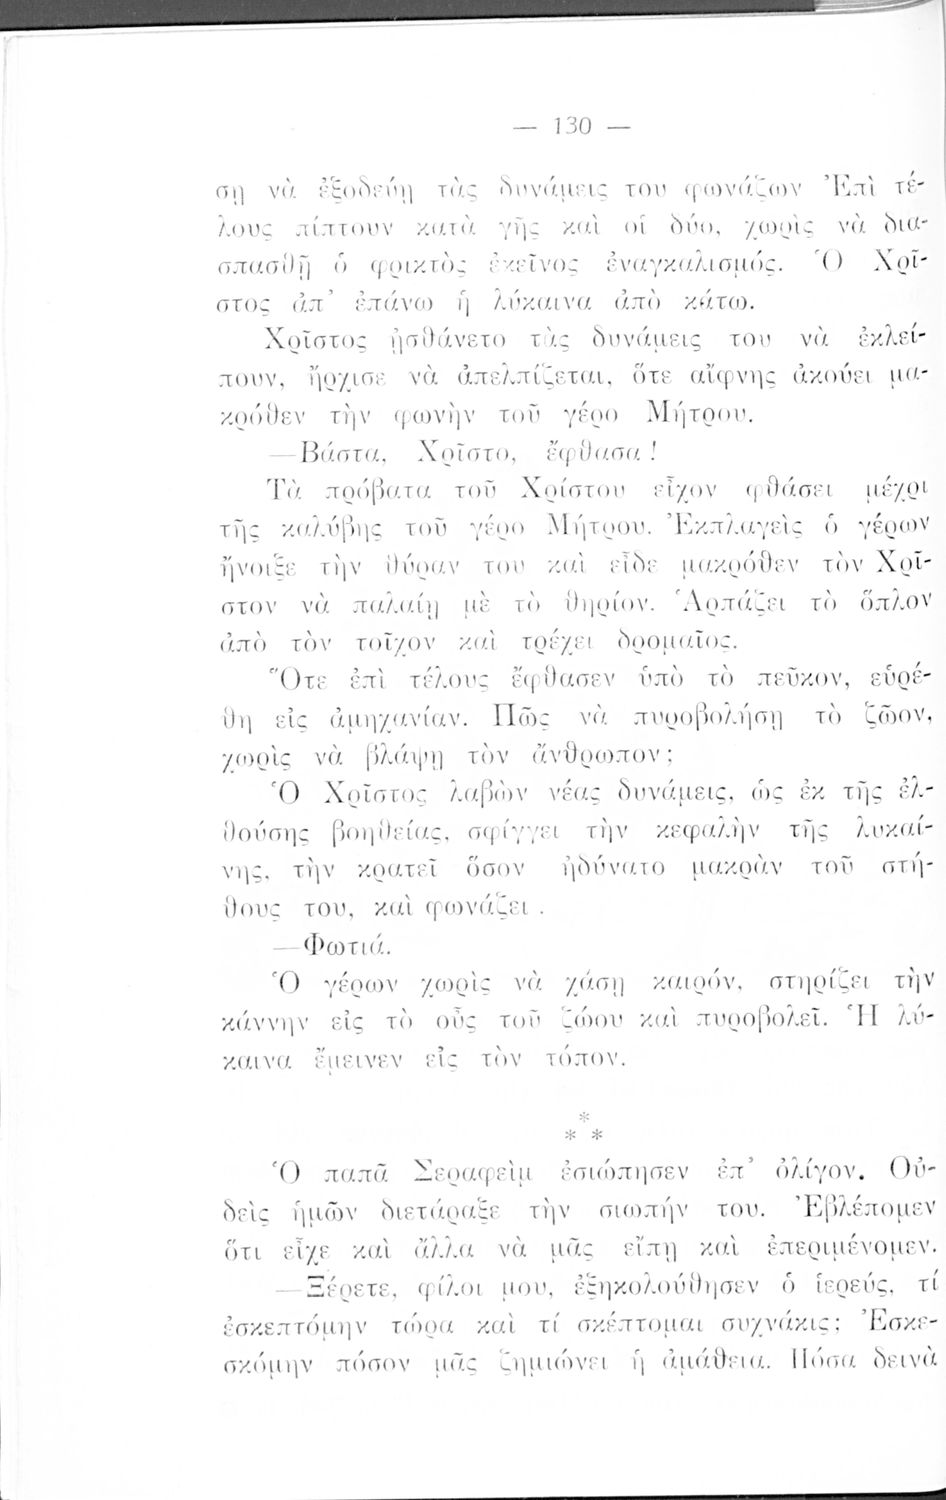 — 130 —
σῃ νὰ ἐξοδεύῃ τὰς δυνάμεις του φωνάζων Ἐπὶ τέ-
λους πίπτουν κατὰ γῆς καὶ οἱ δύο, χωρὶς νὰ δια-
σπασθῇ ὁ φρικτὸς ἐκεῖνος ἐναγκαλισμός. Ὁ Χρῖ-
στος ἀπ’ ἐπάνω ἡ λύκαινα ἀπὸ κάτω.
Χρῖστος ᾐσθάνετο τὰς δυνάμεις του νὰ ἐκλεί-
πουν, ἤρχισε νὰ ἀπελπίζεται, ὅτε αἴφνης ἀκούει μα-
κρόθεν τὴν φωνὴν τοῦ γέρο Μήτρου.
—Βάστα, Χρῖστο, ἔφθασα !
Τὰ πρόβατα τοῦ Χρίστου εἶχον φθάσει μέχρι
τῆς καλύβης τοῦ γέρο Μήτρου. Ἐκπλαγεὶς ὁ γέρων
ἤνοιξε τὴν θύραν του καὶ εἶδε μακρόθεν τὸν Χρῖ-
στον νὰ παλαίῃ μὲ τὸ θηρίον. Ἁρπάζει τὸ ὅπλον
ἀπὸ τὸν τοῖχον καὶ τρέχει δρομαῖος.
Ὅτε ἐπὶ τέλους ἔφθασεν ὑπὸ τὸ πεῦκον, εὑρέ-
θη εἰς ἀμηχανίαν. Πῶς νὰ πυροβολήσῃ τὸ ζῶον,
χωρὶς νὰ βλάψῃ τὸν ἄνθρωπον;
Ὁ Χρῖστος λαβὼν νέας δυνάμεις, ὡς ἐκ τῆς ἐλ-
θούσης βοηθείας, σφίγγει τὴν κεφαλὴν τῆς λυκαί-
νης, τὴν κρατεῖ ὅσον ἠδύνατο μακρὰν τοῦ στή-
θους του, καὶ φωνάζει .
—Φωτιά.
Ὁ γέρων χωρὶς νὰ χάσῃ καιρόν, στηρίζει τὴν
κάννην εἰς τὸ οὖς τοῦ ζώου καὶ πυροβολεῖ. Ἡ λύ-
καινα ἔμεινεν εἰς τὸν τόπον.
*
* *
Ὁ παπᾶ Σεραφεὶμ ἐσιώπησεν ἐπ’ ὀλίγον. Οὐ-
δεὶς ἡμῶν διετάραξε τὴν σιωπήν του. Ἐβλέπομεν
ὅτι εἶχε καὶ ἄλλα νὰ μᾶς εἴπῃ καὶ ἐπεριμένομεν.
—Ξέρετε, φίλοι μου, ἐξηκολούθησεν ὁ ἱερεύς, τί
ἐσκεπτόμην τώρα καὶ τί σκέπτομαι συχνάκις; Ἐσκε-
σκόμην πόσον μᾶς ζημιώνει ἡ ἀμάθεια. Πόσα δεινὰ